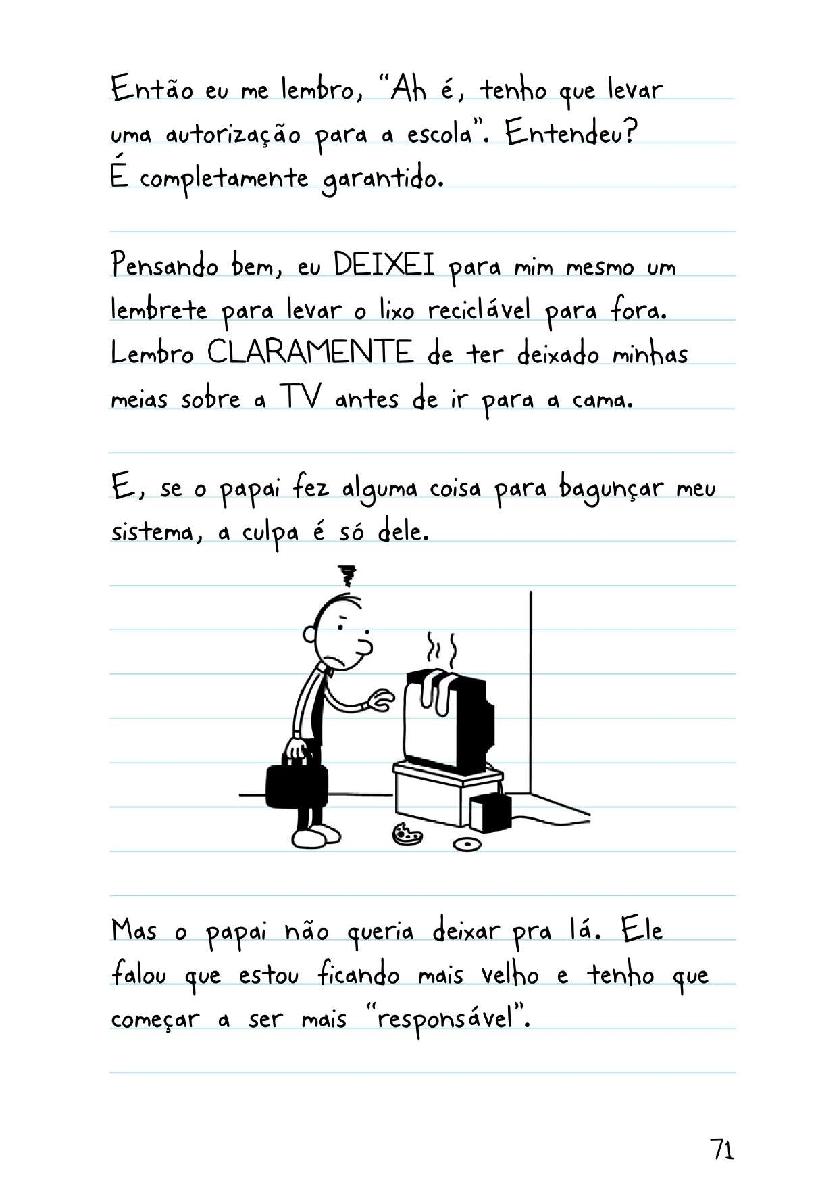 Então eu me lembro, “Ah é, tenho que levar
uma autorização para a escola”. Entendeu?
É completamente garantido.
Pensando bem, eu DEIXEI para mim mesmo um
lembrete para levar o lixo reciclável para fora.
Lembro CLARAMENTE de ter deixado minhas
meias sobre a TV antes de ir para a cama.
E, se o papai fez alguma coisa para bagunçar meu
sistema, a culpa é só dele.
Mas o papai não queria deixar pra lá. Ele
falou que estou ficando mais velho e tenho que
começar a ser mais “responsável”.
71